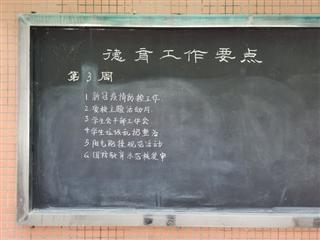 德育工作要点
第3周
1 新冠疫情防控工作
2 安校主题活动月
3 学生会干部工作会
4 学生垃圾乱扔整治
5 阳光跑操规范活动
6 国防教育示范校复审